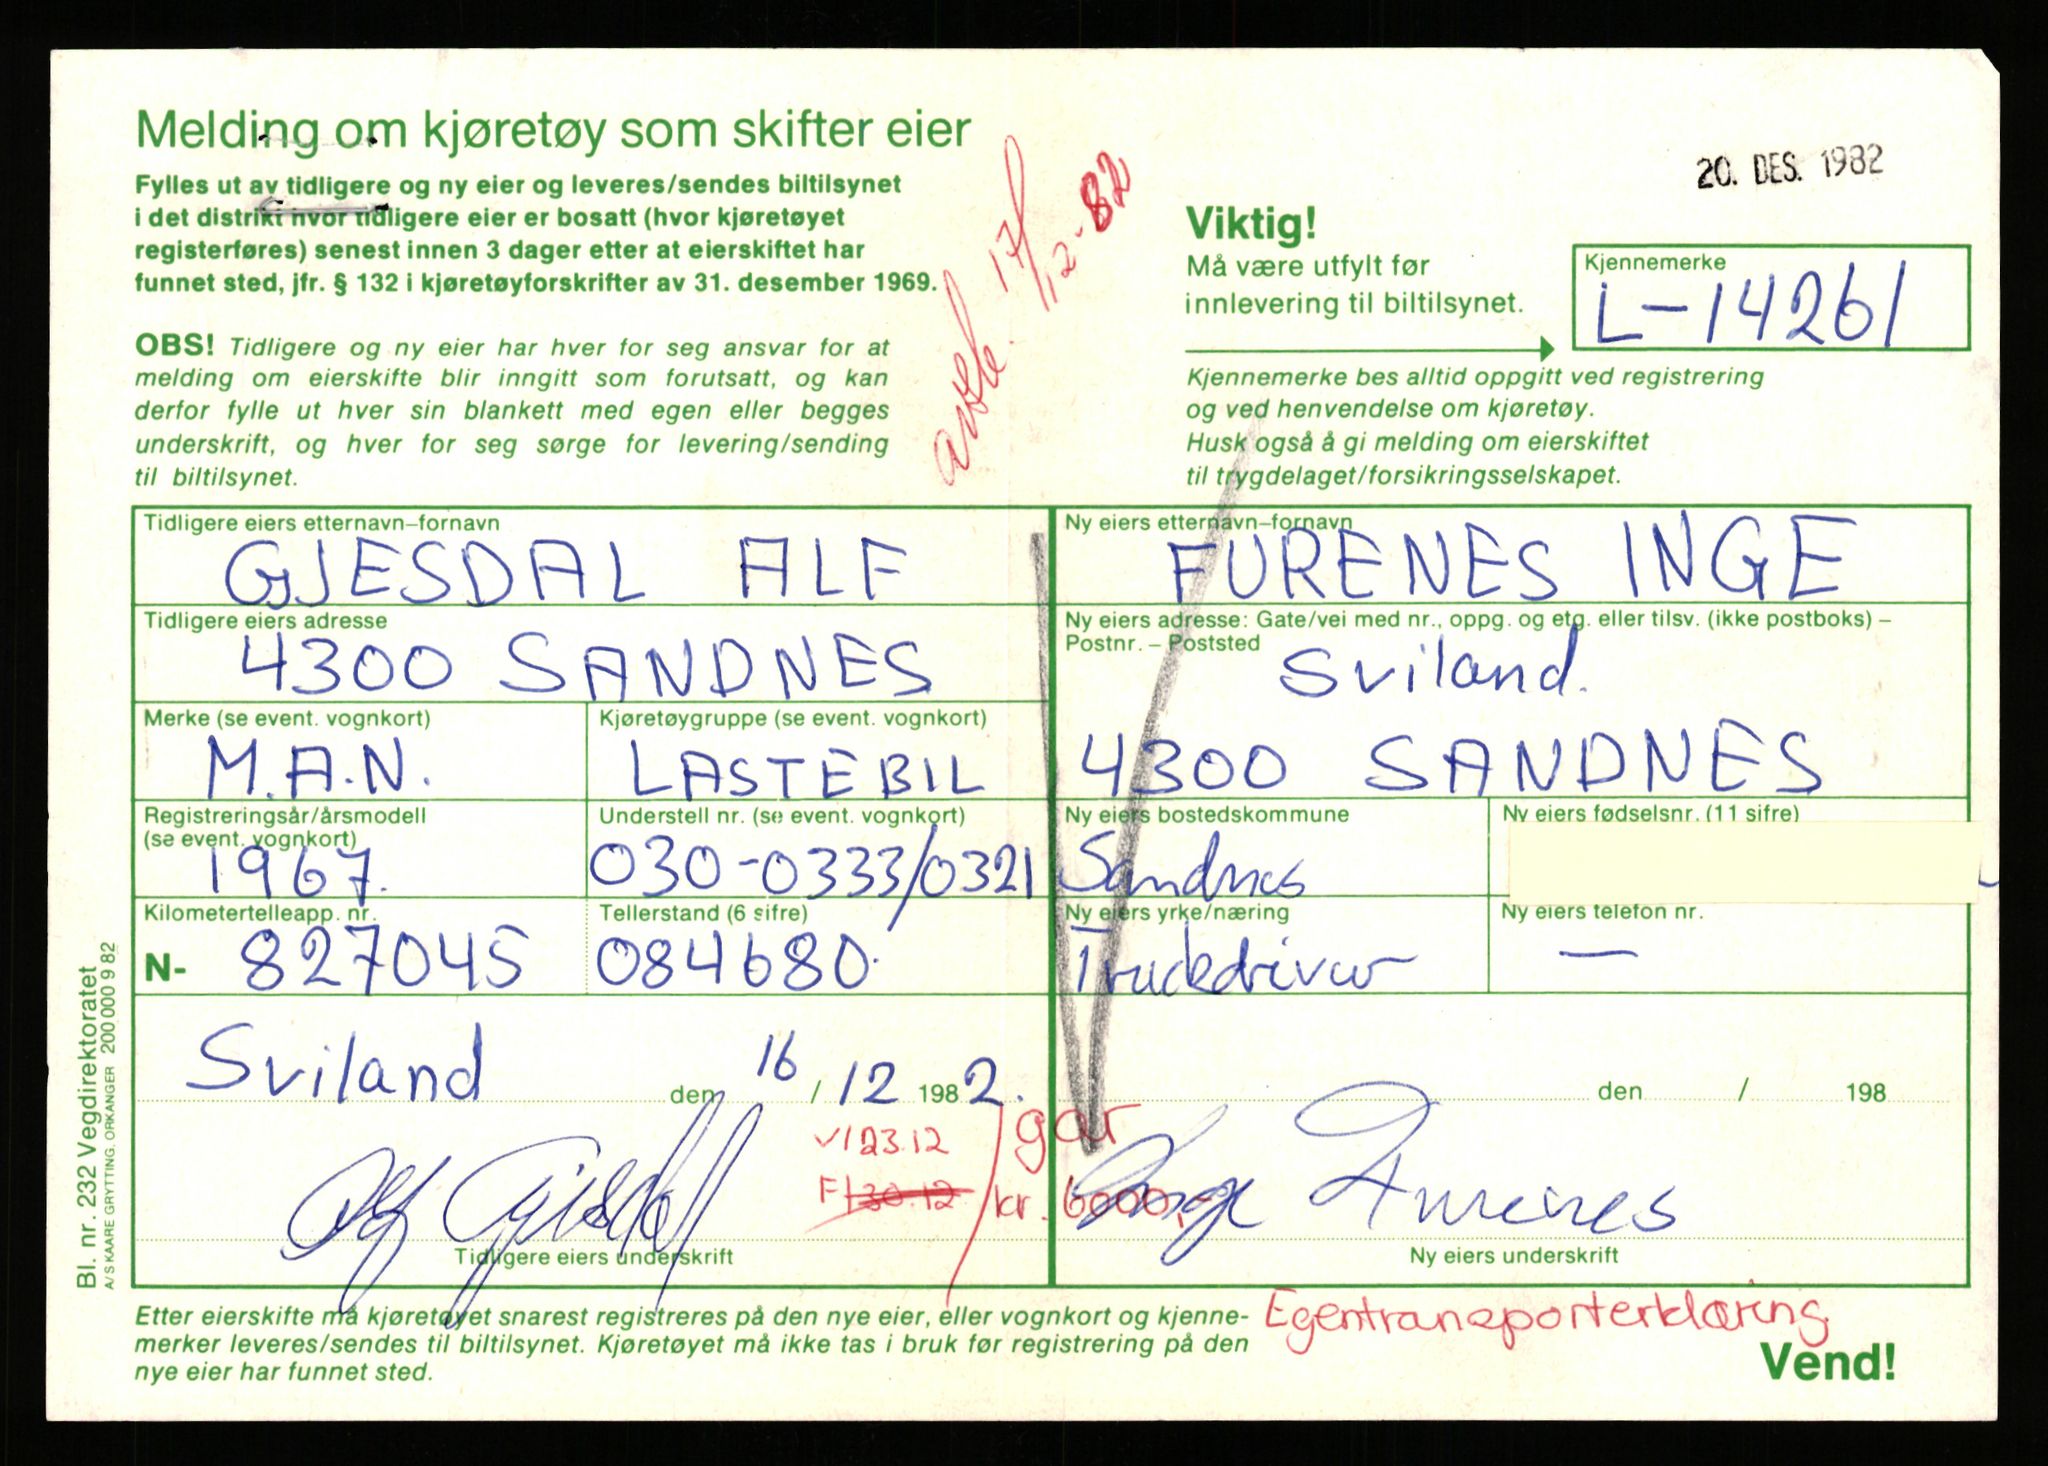 Melding om kjøretøy som skifter eier
Fylles ut av tidligere og ny eier og leveres/sendes biltilsynet
i det distrikt hvor tidligere eier er bosatt (hvor kjøretøyet
registerføres) senest innen 3 dager etter at eierskiftet har
funnet sted, jfr. § 132 i kjøretøyforskrifter av 31. desember 1969.
OBS! Tidligere og ny eier har hver for seg ansvar for at
melding om eierskifte blir inngitt som forutsatt, og kan
derfor fylle ut hver sin blankett med egen eller begges
underskrift, og hver for seg sørge for levering/sending
til biltilsynet.
17/12-82
20. DES. 1982
Viktig!
Må være utfylt før
innlevering til biltilsynet.
Kjennemerke
L-14261
Kjennemerke bes alltid oppgitt ved registrering
og ved henvendelse om kjøretøy.
Husk også å gi melding om eierskiftet
til trygdelaget/forsikringsselskapet.
Tidligere eiers etternavn–fornavn
GJESDAL ALF
Tidligere eiers adresse
4300 SANDNES
Merke (se event. vognkort)
M.A.N.
Kjøretøygruppe (se event. vognkort)
LASTEBIL
Registreringsår/årsmodell
(se event. vognkort)
1967.
Understell nr. (se event. vognkort)
030-0333/0321
Kilometertelleapp. nr.
N- 827045
Tellerstand (6 sifre)
084680.
Sviland den 16 / 12 1982.
Alf Gjesdal
Tidligere eiers underskrift
V/23.12
F/30.12
gar
kr. 6000,-
Ny eiers etternavn–fornavn
FURENES INGE
Ny eiers adresse: Gate/vei med nr., oppg. og etg. eller tilsv. (ikke postboks) –
Postnr. – Poststed
Sviland.
4300 SANDNES
Ny eiers bostedskommune
Sandnes
Ny eiers fødselsnr. (11 sifre)
Ny eiers yrke/næring
Truckdriver
Ny eiers telefon nr.
—
den / 198
Inge Furenes
Ny eiers underskrift
Etter eierskifte må kjøretøyet snarest registreres på den nye eier, eller vognkort og kjenne-
merker leveres/sendes til biltilsynet. Kjøretøyet må ikke tas i bruk før registrering på den
nye eier har funnet sted.
Egentransporterklæring
Vend!
Bl. nr. 232 Vegdirektoratet
A/S KAARE GRYTTING. ORKANGER 200 000 9 82